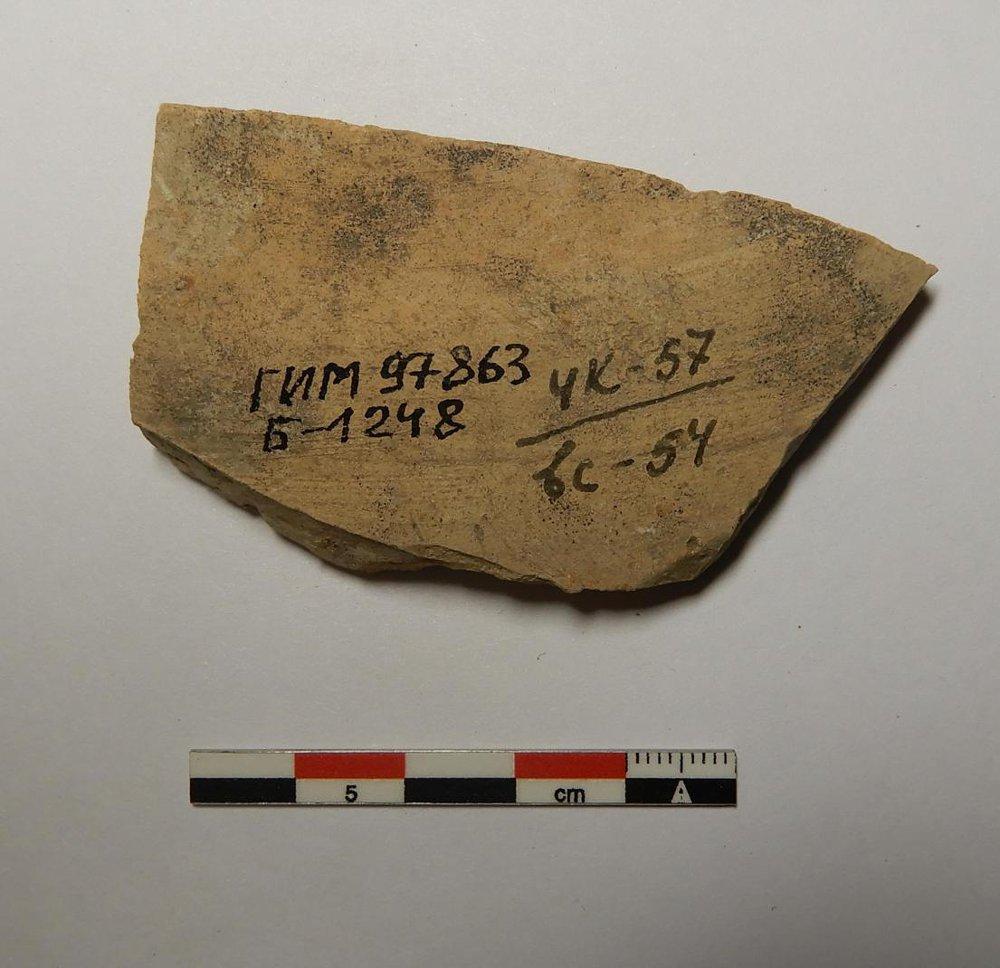 ГИМ 97863
Б-1248
ЧК-57
вс-54
5 cm